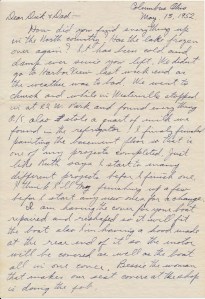 Columbus Ohio
May 19, 1952
Dear Dick & Dad—
How did you find everything up
in the north country? Has the lake froze
over again? It has been cold and
damp ever since you left. We didn't
go to Harbor View last week end as
the weather was so bad. We went to
church and while in Westerville stopped
in at 82 W. Park and found everything
O.K. also stole a quart of milk we
found in the refrigator. I finaly finished
painting the basement floor so that is
one of my projects completed. Just
like Ruth says I start so many
different projects before I finish one.
I think I'll try finishing up a few
before I start any new ones for a change.
I am having the cover for your boat
repaired and reshaped so it will fit
the boat also I'm having a hood made
at the rear end of it so the motor
will be covered as well as the boat
all in one cover. Bessie the woman
that makes our seat covers at the shop
is doing the job.